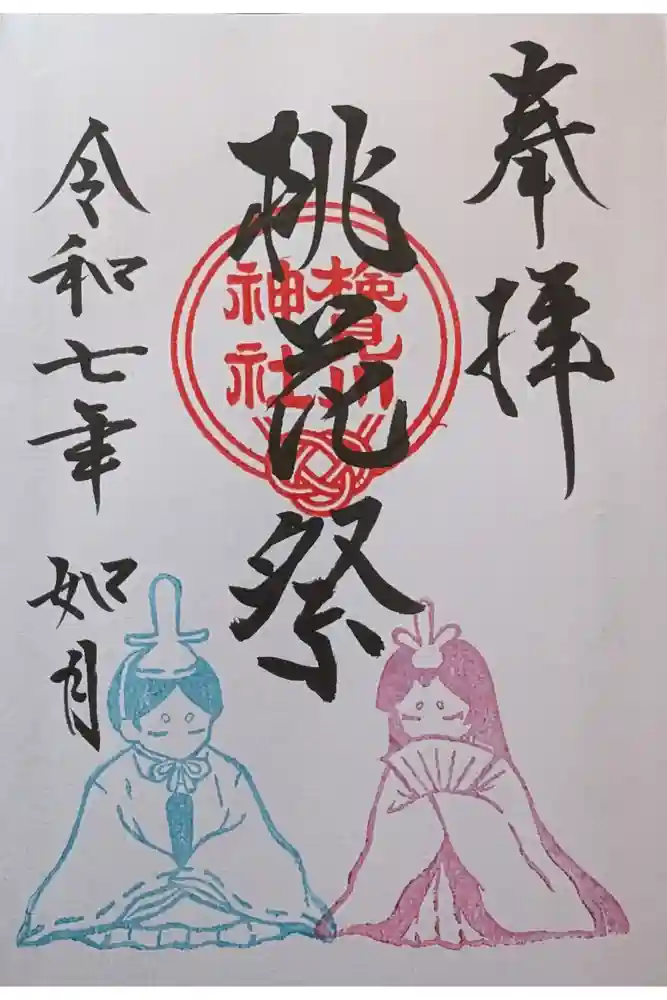 奉拝
桃花祭
検見川
神社
令和七年 如月